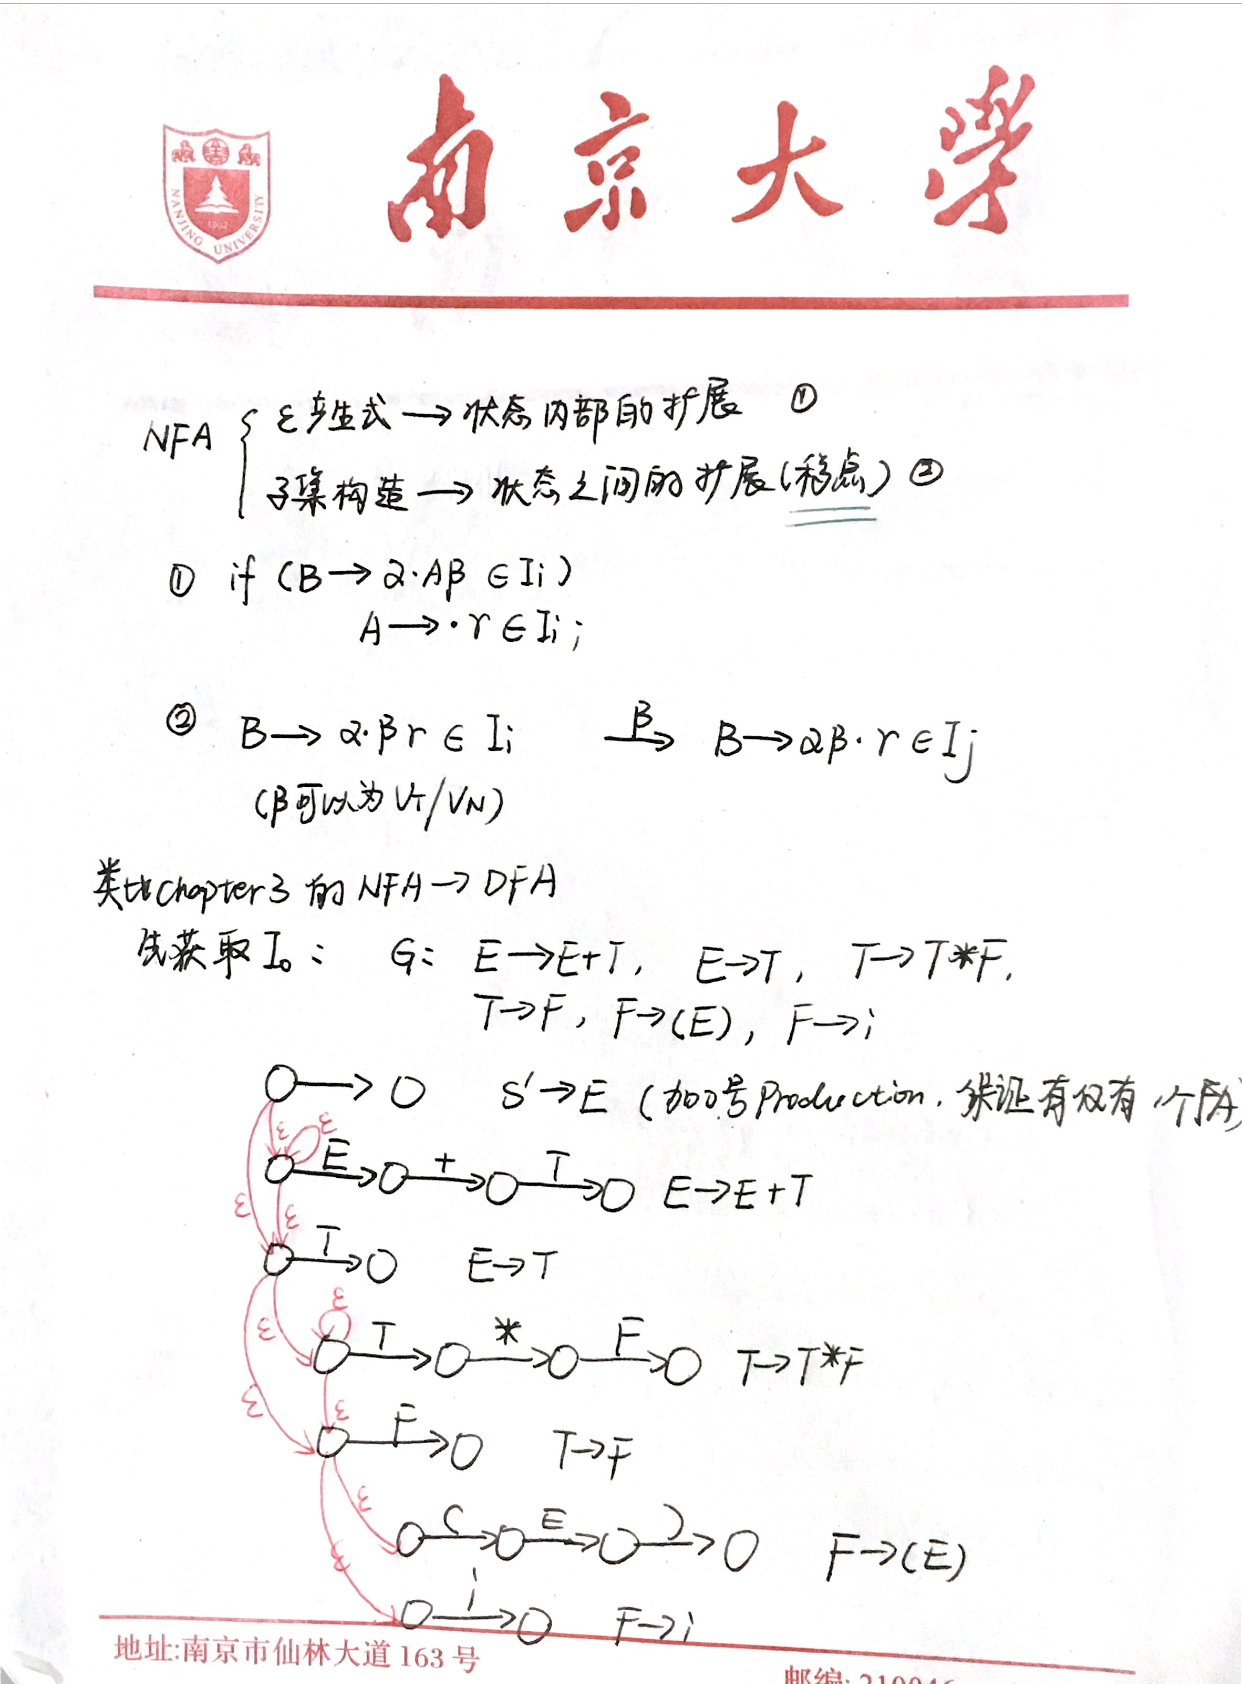 南京大学
NANJING UNIVERSITY
1902
NFA { ε产生式 → 状态内部的扩展 ①
子集构造 → 状态之间的扩展(移点) ②
① if (B → α·Aβ ∈ Ii)
A → ·γ ∈ Ii;
② B → α·βγ ∈ Ii β→ B → αβ·γ ∈ Ij
(β可以为 VT/VN)
类比Chapter3 的 NFA → DFA
先获取 I₀: G: E→E+T, E→T, T→T*F,
T→F, F→(E), F→i
S'→E (加0号Production, 保证有仅有1个FA)
ε ε
E + T E→E+T
ε ε
T E→T
ε
ε T * F T→T*F
ε ε
F T→F
ε
( E ) F→(E)
ε
i F→i
地址:南京市仙林大道 163 号
邮编: 210046